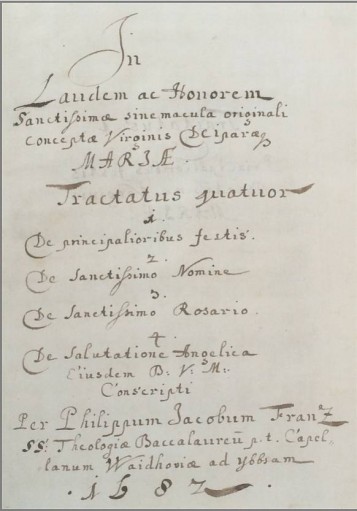 In
Laudem ac Honorem
Sanctissimæ sine macula originali
conceptæ Virginis Deiparæq
MARIÆ.
Tractatus quatuor
1.
De principalioribus festis.
2.
De Sanctissimo Nomine
3.
De Sanctissimo Rosario.
4.
De Salutatione Angelica
Eiusdem B: V: M:
Conscripti
Per Philippum Jacobum Franz
SS: Theologiæ Baccalaureū p.t. Capel-
lanum Waidhoviæ ad ybbsam
· 1682